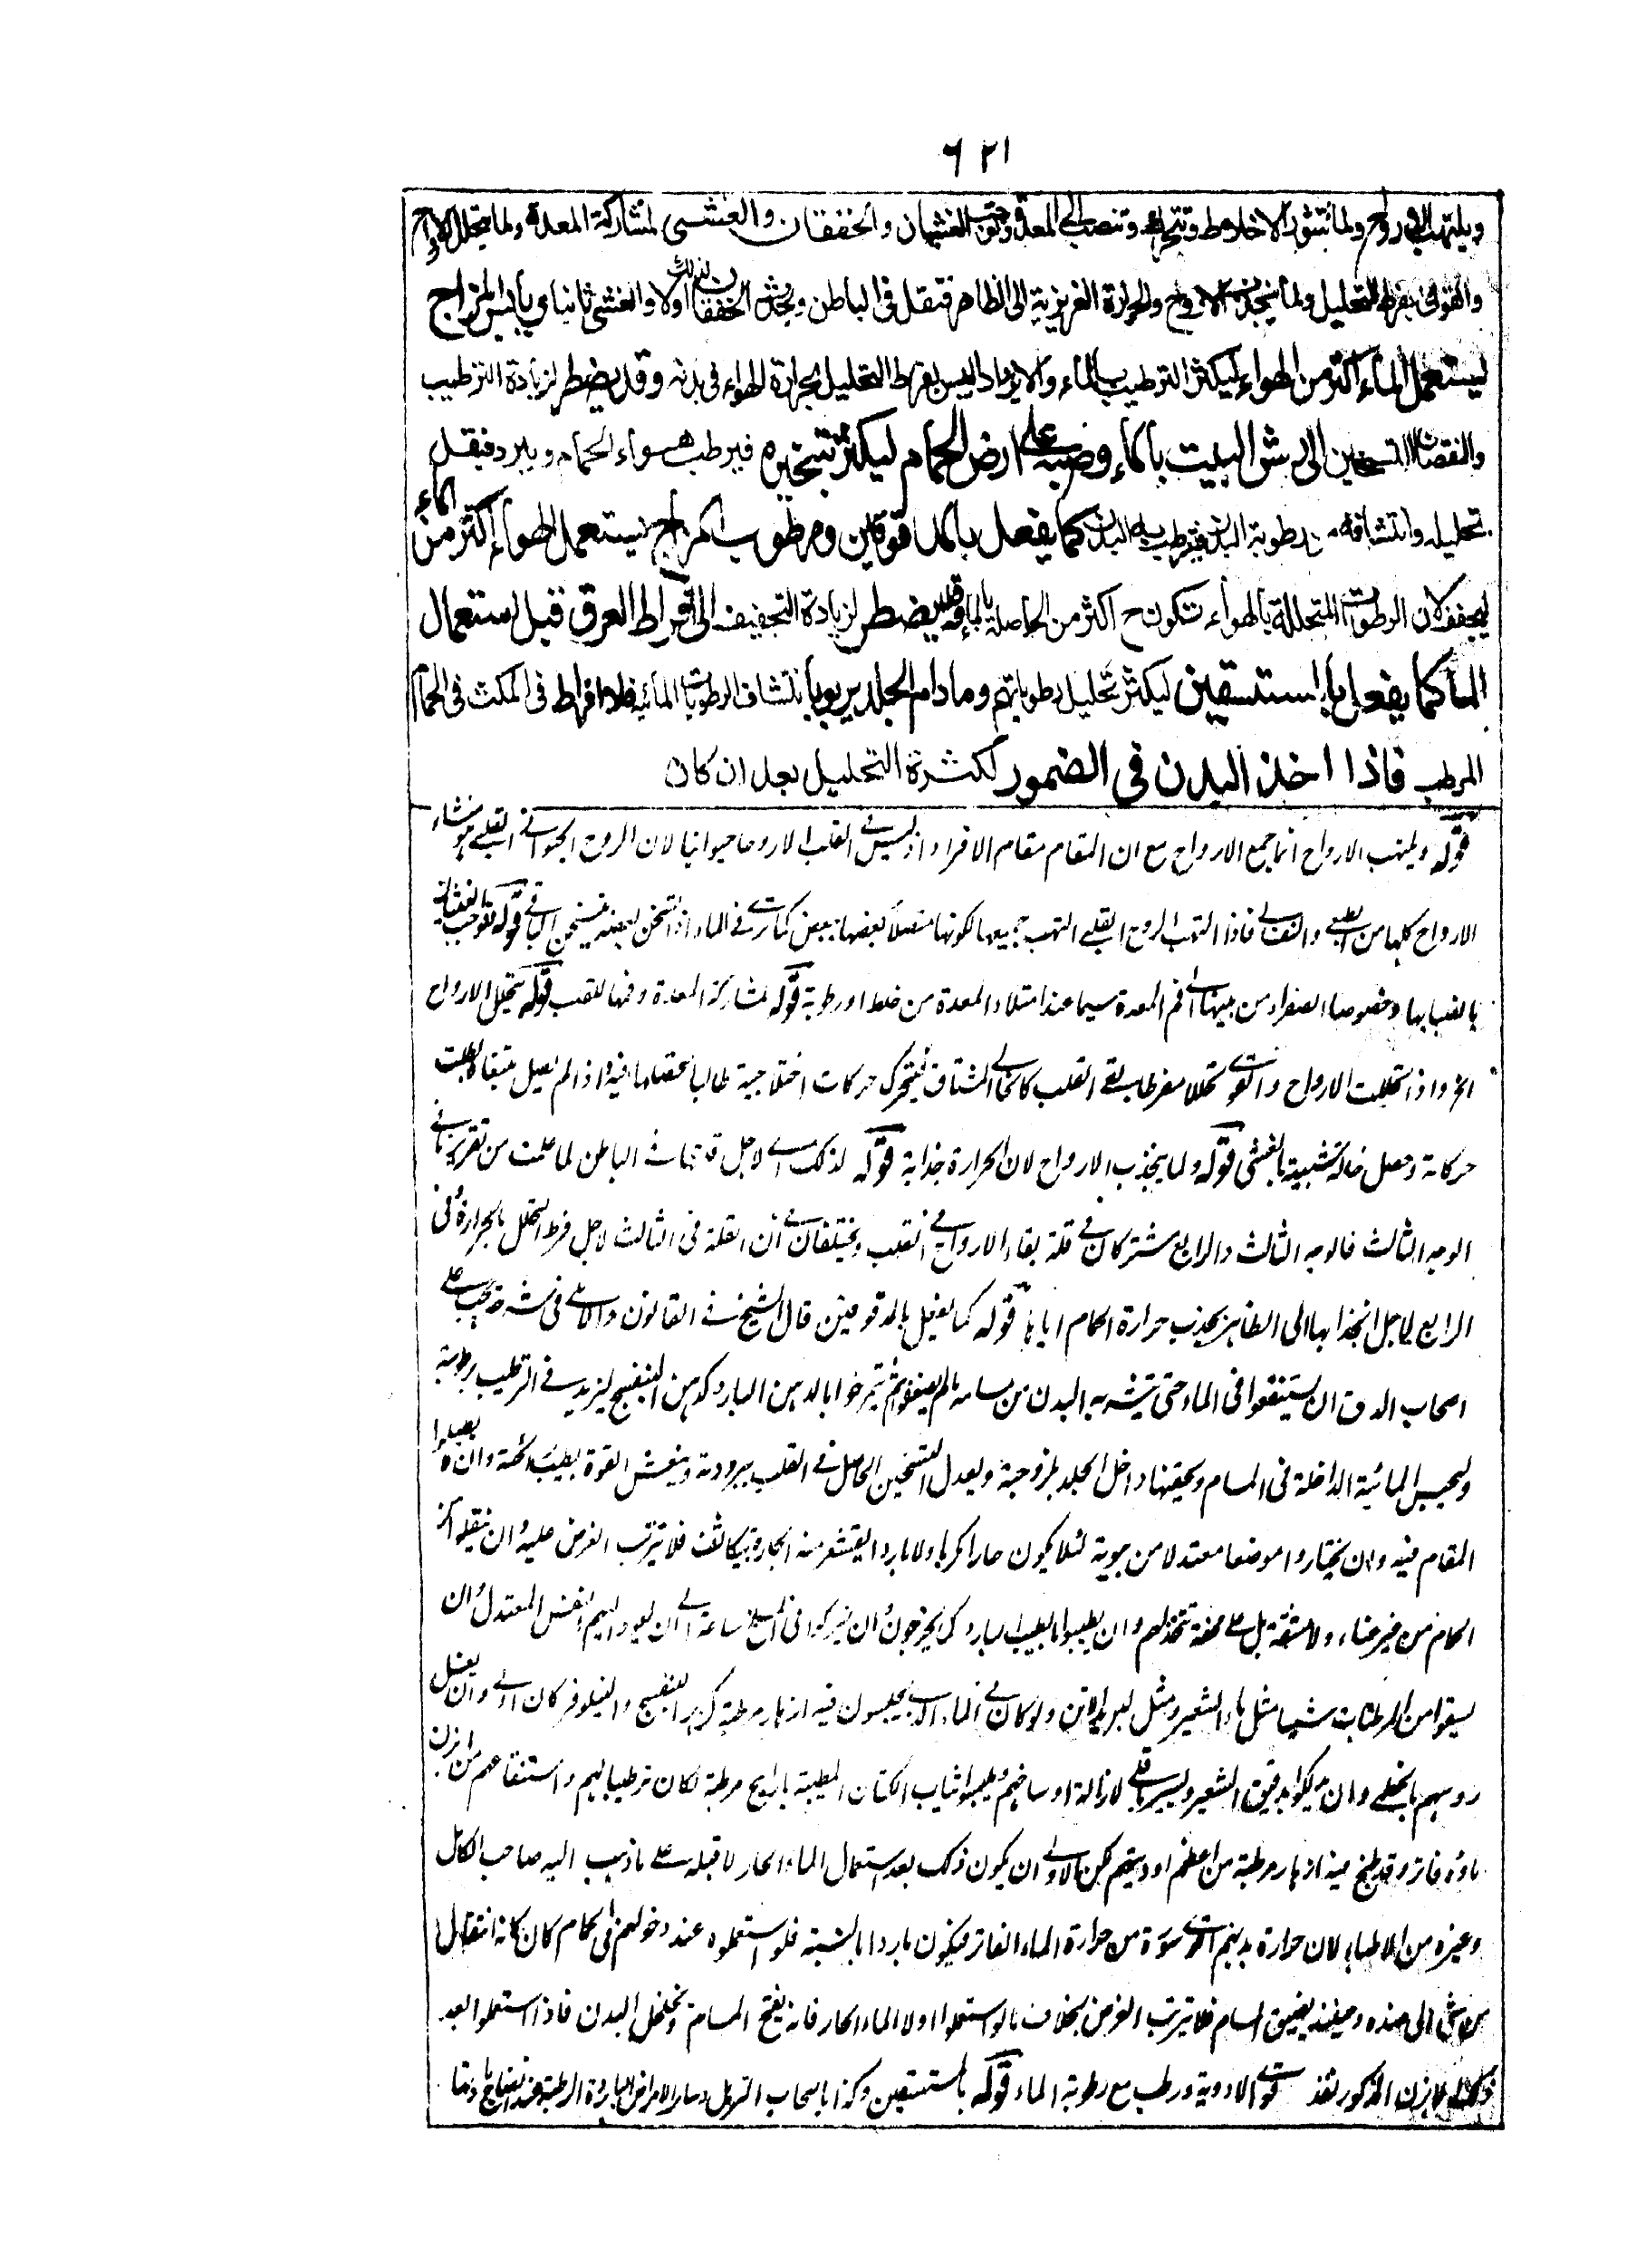 ٦٢١
ويلتهب الارواح ولما تثور الاخلاط وتتحرك وتنصب الى المعدة وتوجب الغثيان والخفقان والغشى لمشاركة المعدة ولما يتحلل الارواح
والقوى بفرط التحليل ولما ينجذب الارواح والحرارة الغريزية الى الظاهر فتقل فى الباطن ويحدث الخفقان لذلك اولا والغشى ثانيا ويابس المزاج
يستعمل الماء اكثر من الهواء ليكثر الترطيب بالماء ولا يزداد اليبس بفرط التحليل بحرارة الهواء فى بدنه وقد يضطر لزيادة الترطيب
والنقصان التسخين الى رش البيت بالماء وصبه على ارض الحمام ليكثر تبخيره فيرطب هواء الحمام ويبرد فيقل
تحليله وانتشافه رطوبة البدن فيرطب به البدن كما يفعل بالمدقوقين ومرطوب المزاج يستعمل الهواء اكثر من الماء
ليجفف لان الرطوبات المتحللة بالهواء تكون ح اكثر من الحاصلة بالماء وقد يضطر لزيادة التجفيف الى افراط العرق قبل استعمال
الماء كما يفعل بالمستسقين ليكثر تحليل رطوباتهم وما دام الجلد يربو بانتشاف الرطوبات المائية فلا افراط فى المكث فى الحمام
المرطب فاذا اخذ البدن فى الضمور لكثرة التحليل بعد ان كان
قوله ويلتهب الارواح انما جمع الارواح مع ان المقام مقام الافراد اذ ليس فى القلب الا روحا حيوانيا لان الروح الحيوانى القلبى هو منشاء
الارواح كلها من الطبعى والنفسانى فاذا التهب الروح القلبى التهب جميعها لكونها متصلا بعضها ببعض كما ترى فى الماء اذا تسخن بعضه يتسخن الباقى قوله توجب الغثيان
بانصبابها وخصوصا الصفراء من بينها الى فم المعدة سيما عند امتلاء المعدة من خلط او رطوبة قوله لمشاركة المعدة وفمها للقلب قوله يتحلل الارواح
الخ واذا تحللت الارواح والقوى تحللا مفرطا بقى القلب كالخالى المشتاق فيتحرك حركات اختلاجية طالبا لحصولها فيه واذا لم يصل
حركاته وحصل حالة شبيهة بالغشى قوله ولما ينجذب الارواح لان الحرارة جذابة قوله لذلك اى لاجل قلتها فى الباطن لما علمت من تقريرنا فى
الوجه الثالث فالوجه الثالث والرابع مشتركان فى قلة بقاء الارواح فى القلب ويختلفان فى ان القلة فى الثالث لاجل فرط التحلل بالحرارة وفى
الرابع لاجل انجذابها الى الظاهر بجذب حرارة الحمام اياها قوله كما يفعل بالمدقوقين قال الشيخ فى القانون والآملى فى شرحه يجب على
اصحاب الدق ان يستنقعوا فى الماء حتى يتشربه البدن من مسامه ما لم يضعفوا ثم يتمرخوا بالدهن البارد كدهن البنفسج ليزيد فى الترطيب برطوبته
وليحبس المائية الداخلة فى المسام ويحقنها داخل الجلد بلزوجته ويعدل التسخين الحاصل فى القلب ببرودته وينعش القوة بطيب رائحته وان لا يطيلوا
المقام فيه وان يختاروا موضعا معتدلا من بيوته لئلا يكون حارا كربا ولا باردا يقشعر منه الجلد ويتكاثف فلا يترتب الغرض عليه وان ينتقلوا من
الحمام من غير عناء ولا مشقة بل على محفة تتخذ لهم وان يطيبوا بالطيب البارد كما يخرجون وان يتركوا فى المسلخ ساعة الى ان يعود اليهم النفس المعتدل وان
يسقوا من المرطبات شيئا مثل ماء الشعير ومثل لبن الاتن ولو كان فى الماء الذى يجلسون فيه ازهار مرطبة كزهر البنفسج والنيلوفر كان اولى وان يغسل
روسهم بالخطمى وان يدلكوا بدقيق الشعير ويسير باقلى لازالة اوساخهم ويلبسوا ثياب الكتان المطيبة بارايح مرطبة لكان ترطيبا لهم واستنقاعهم من ابزن
ماؤه فاتر وقد طبخ فيه ازهار مرطبة من اعظم ادويتهم لكن الاولى ان يكون ذلك بعد استعمال الماء الحار لا قبله على ما ذهب اليه صاحب الكامل
وغيره من الاطباء لان حرارة بدنهم اقوى سورة من حرارة الماء الفاتر فيكون باردا بالنسبة فلو استعملوه عند دخولهم فى الحمام كان كانه انتقال
من شئ الى ضده وحينئذ يضيق المسام فلا يترتب الغرض بخلاف ما لو استعملوا اولا الماء الحار فانه يفتح المسام ويخلخل البدن فاذا استعملوا بعد
ذلك الابزن المذكور نفذ قوى الادوية ورطب مع رطوبة الماء قوله بالمستسقين وكذا باصحاب الترهل وسائر الامراض الباردة الرطبة